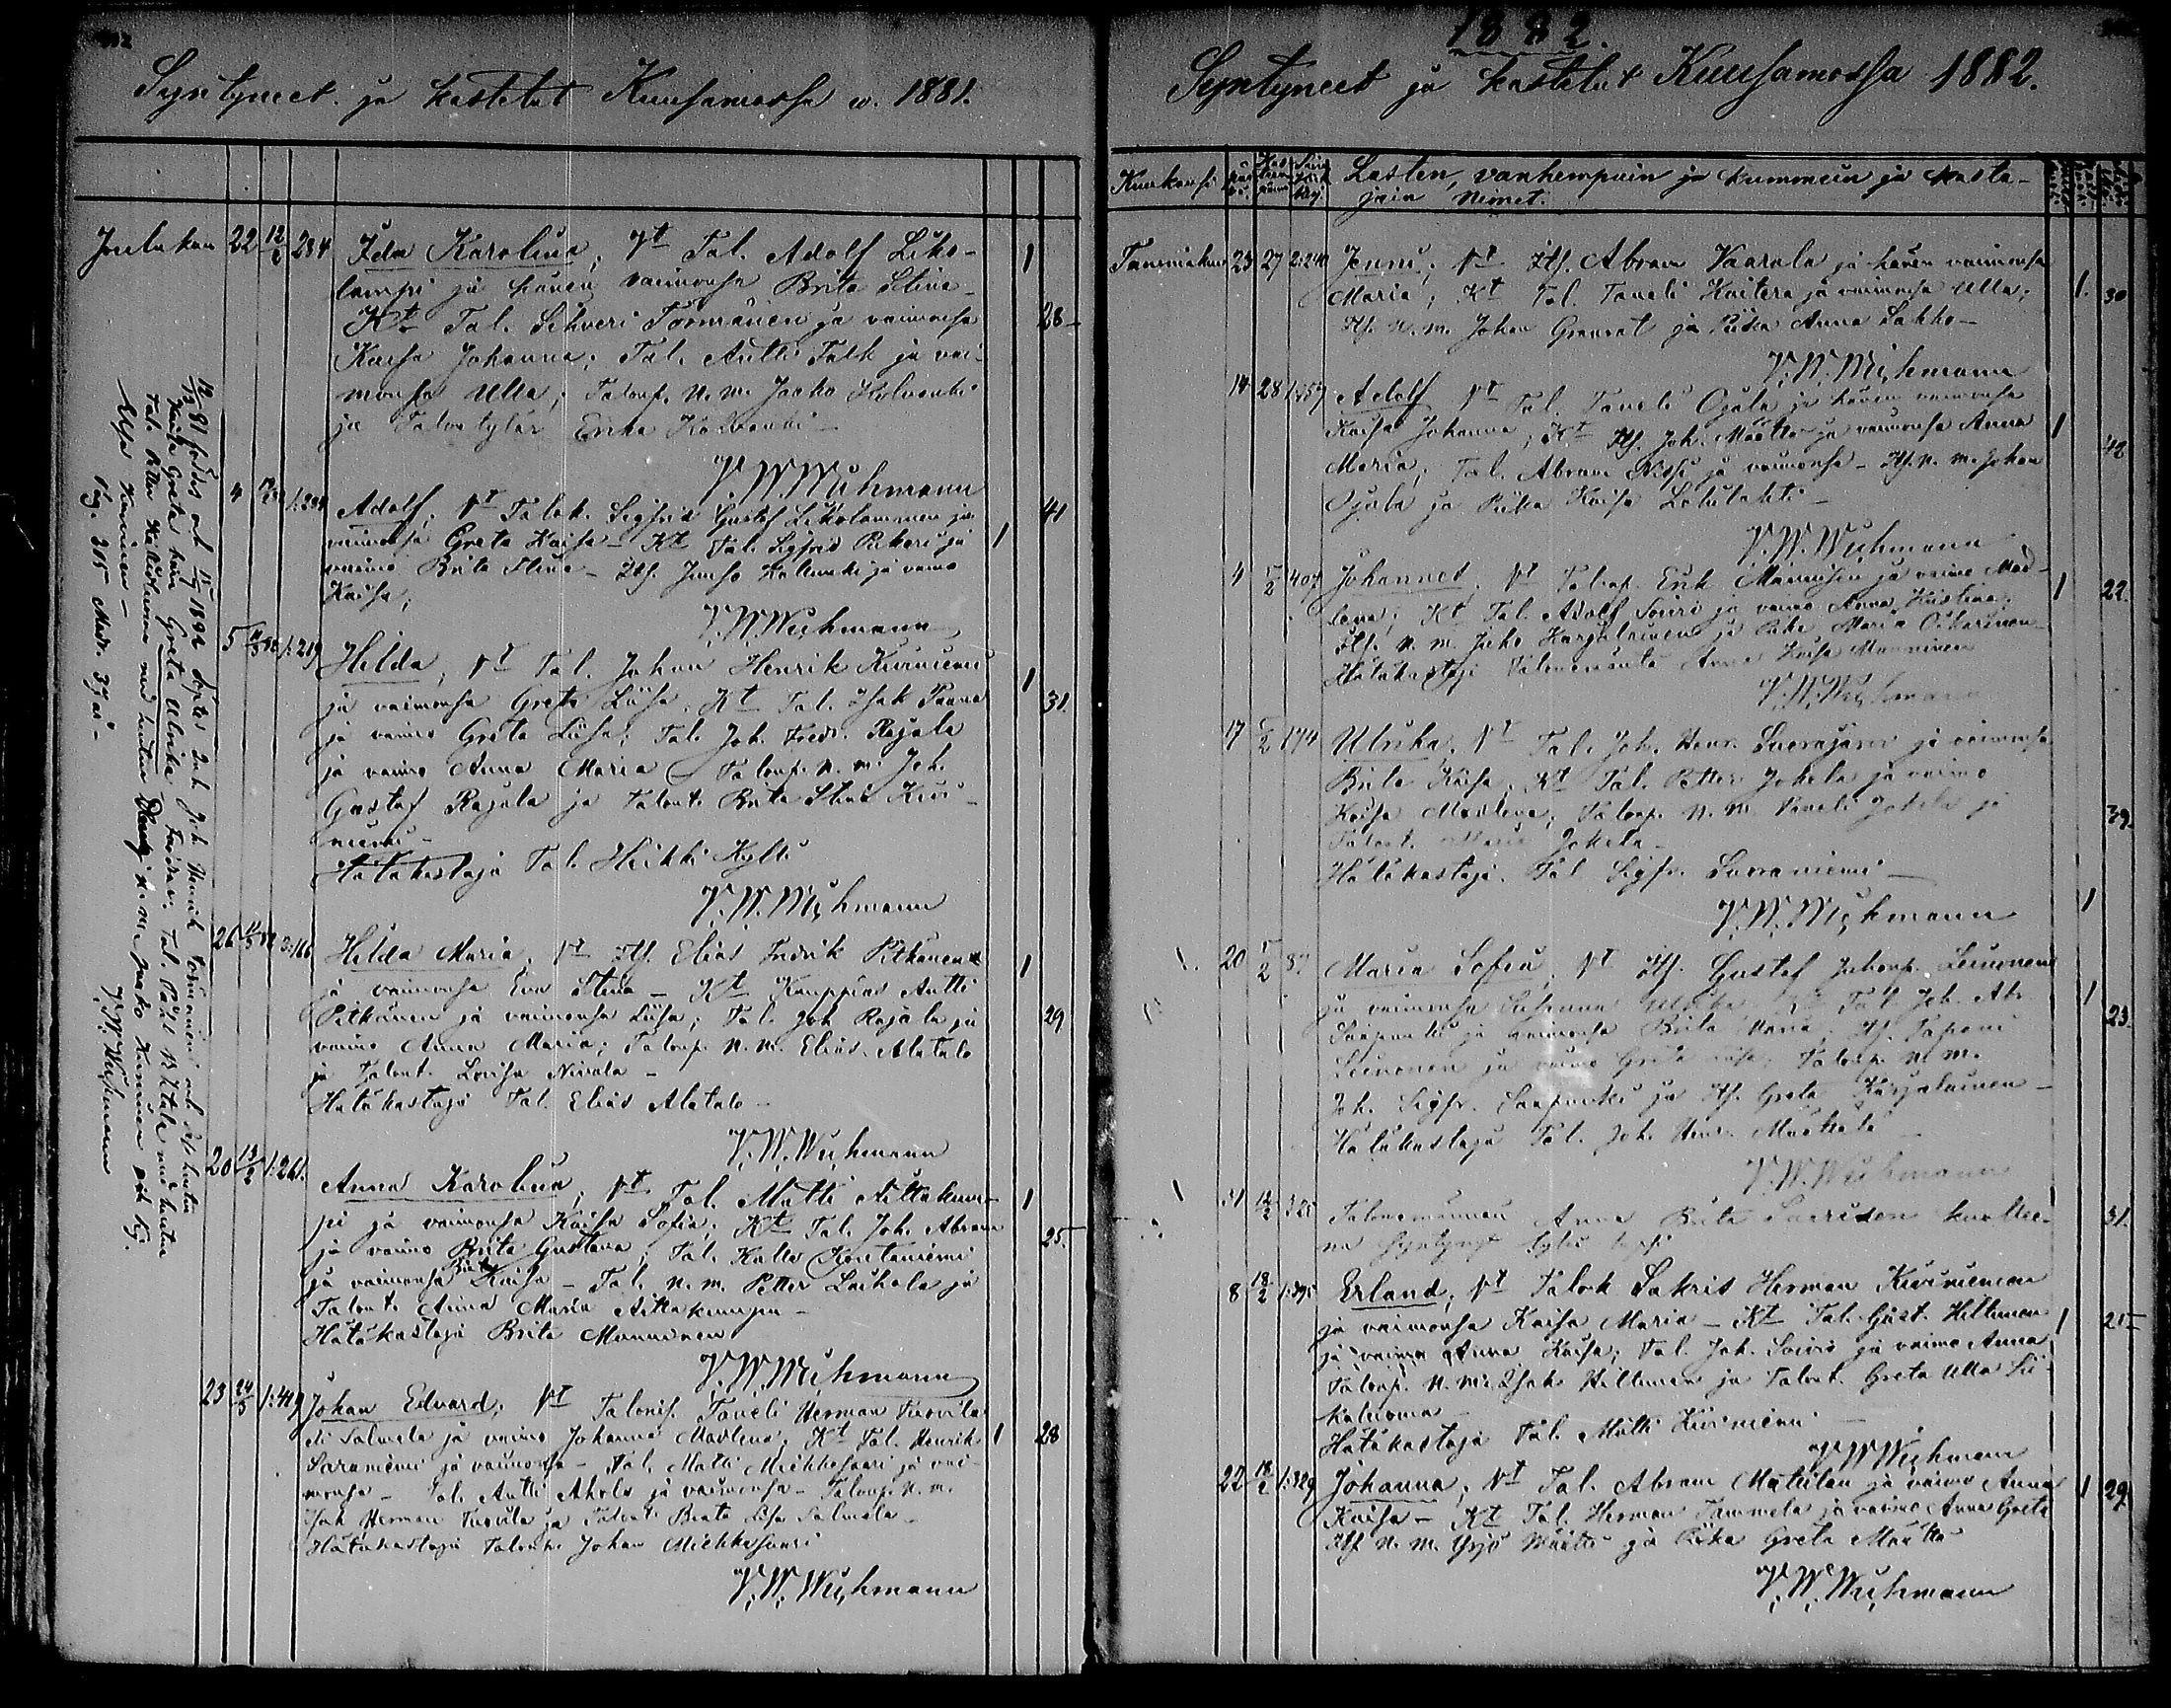 Syntyneet ja kastetut Kuusamossa v. 1881.
Joulukuu 22 12/2 284 Ida Karolina, Vt Tal. Adolf Liko-
lampi ja hänen vaimonsa Brita Stina 1
Kt Tal. Sihveri Tormänen ja vaimonsa 28
Kaisa Johanna; Tal. Antti Talk ja vai-
monsa Ulla; Talonp. N. m. Jaako
ja Talontytär Erika
V. W. Wichmann
4 1:238 Adolf, Vt Talok. Sigfrid Gustaf Likolammen ja 41
vaimonsa Greta Kaisa – Kt Tal. Sigfrid Pikari ja 1
vaimo Brita Stina – Its. Junso ja vaimo
Kaisa;
V. W. Wichmann
5 1:219 Hilda, Vt Tal. Johan Henrik Kiviniemi
ja vaimonsa Greta Liisa. Kt Tal. Isak Paana 1 31.
ja vaimo Greta Liisa; Tal. Joh. Fredr. Rajala
ja vaimo Anna Maria – Talonp. N. m. Joh.
Gustaf Rajala ja Talont. Brita Stina Kivi-
niemi –
Hätäkastaja Tal. Heikki Kylli
V. W. Wichmann
26 3:166 Hilda Maria. Vt Its. Elias Fredrik Pitkänen
ja vaimonsa Eva Stina – Kt Kauppias Antti 1
Pitkänen ja vaimonsa Liisa; Tal. Joh Rajala ja 29
vaimo Anna Maria; Talonp. N. m. Elias Alatalo
ja Talont. Lovisa Nivala –
Hätäkastaja Tal. Elias Alatalo –
V. W. Wichmann
20 13/2 1:261. Anna Karolina, Vt Tal. Matti Aittakum-
pi ja vaimonsa Kaisa Sofia; Kt Tal. Joh. Abram 1
ja vaimo Brita Gustava; Tal. Kalle Kontaniemi 25.
ja vaimonsa Brita Kaisa – Tal. N. m. Petter Laihola ja
Talont. Anna Maria Aittakumpu –
Hätäkastaja Brita Manninen
V. W. Wichmann
23 24/5 1:419 Johan Edvard; Vt Talonis. Taneli Herman Turvila
eli Salmela ja vaimo Johanna Madlena; Kt Tal. Henrik 1 28
Saraniemi ja vaimonsa – Tal. Matti Mickkesaari ja vai-
monsa – Tal. Antti Ahola ja vaimonsa – Talonp. N. m.
Isak Herman Turvila ja Talont. Beata Liisa Salmela –
Hätäkastaja Talonp. Johan Mickkesaari
V. W. Wichmann
12/12 81 föddes och 15/7 1894 döptes Joh. Henrik Törmänen och dess hustru
Kaisa Greta barn Greta Ulrika, Faddrar: Tal. Påhl Vstola med hustru
Tal. Petter med hustru n. m. Jaako Kurvinen och Pig.
Elsa Kurvinen –
Pag. 315 Modr. 37 år – V. W. Wichmann
1882.
Syntyneet ja kastetut Kuusamossa 1882.
Kuukausi Lasten, vanhempain ja kummein ja kasta-
jain nimet.
Tammikuu 23 27 2:241 Jenni; Vt Its. Abram Vaarala ja hänen vaimonsa
Maria; Kt Tal. Taneli Haitera ja vaimonsa Ulla; 1. 30
Its. N. m. Johan Granrot ja Piika Anna Lahko –
V. W. Wichmann
14 28 1:357 Adolf Vt Tal. Taneli Ojala ja hänen vaimonsa
Kaisa Johanna; Kt Its. Joh. Määttä ja vaimonsa Anna 1
Maria; Tal. Abram Nissi ja vaimonsa – Its. N. m. Johan 42
Ojala ja Piika Kaisa Lahtilahti –
V. W. Wichmann
4 5/2 407 Johannes, Vt Talonp. Erik Manninen ja vaimo Mad- 1 22.
lena; Kt Tal. Adolf Soivi ja vaimo Anna Kristina;
Its. N. m. Juho Karjalainen ja Piika Maria Oikarinen –
Hätäkastaja Talonemäntä Anna Kaisa Manninen
V. W. Wichmann
17 5/2 174 Ulrika, Vt Tal. Joh. Henr. Suorajärvi ja vaimonsa
Brita Kaisa. Kt Tal. Petter Jokela ja vaimo
Kaisa Madlena; Talonp. N. m. Taneli Jokela ja 39.
Talont. Maria Jokela –
Hätäkastaja. Tal Sigfr. Suoraniemi –
V. W. Wichmann 1
1. 20 5/2 87 Maria Sofia, Vt Its. Gustaf Juhonp. Leinonen
ja vaimonsa Susanna Ulrika; Kt Tal. Joh. Abr. 1
ja vaimonsa Brita Maria; Its. Tapani 23.
Leinonen ja vaimo Greta Liisa. Talonp. N. m.
Joh. Sigfr. ja Its. Greta Karjalainen –
Hätäkastaja Tal. Joh. Henr.
V. W. Wichmann
1 31 12/2 325 Talonemännän Anna Brita kuollee- 31.
na syntynyt lapsi
8 18/2 1:395 Erland, Vt Talok Sakris Herman Kiviniemen
ja vaimonsa Kaisa Maria – Kt Tal. Gust. Hiltunen 1 21
ja vaimo Anna Kaisa; Tal. Joh. Soivio ja vaimo Anna;
Talonp. N. m. Isak Hiltunen ja Talont. Greta Ulla
Hätäkastaja Tal. Matti Kiviniemi –
V. W. Wichmann
22 18/2 1:329 Johanna; Vt Tal. Abram Matilan ja vaimo Anna 1 29.
Kaisa – Kt Tal. Herman Tammela ja vaimo Anna Greta
Its. N. m. Yrjö Määttä ja Piika Greta Määttä
V. W. Wichmann